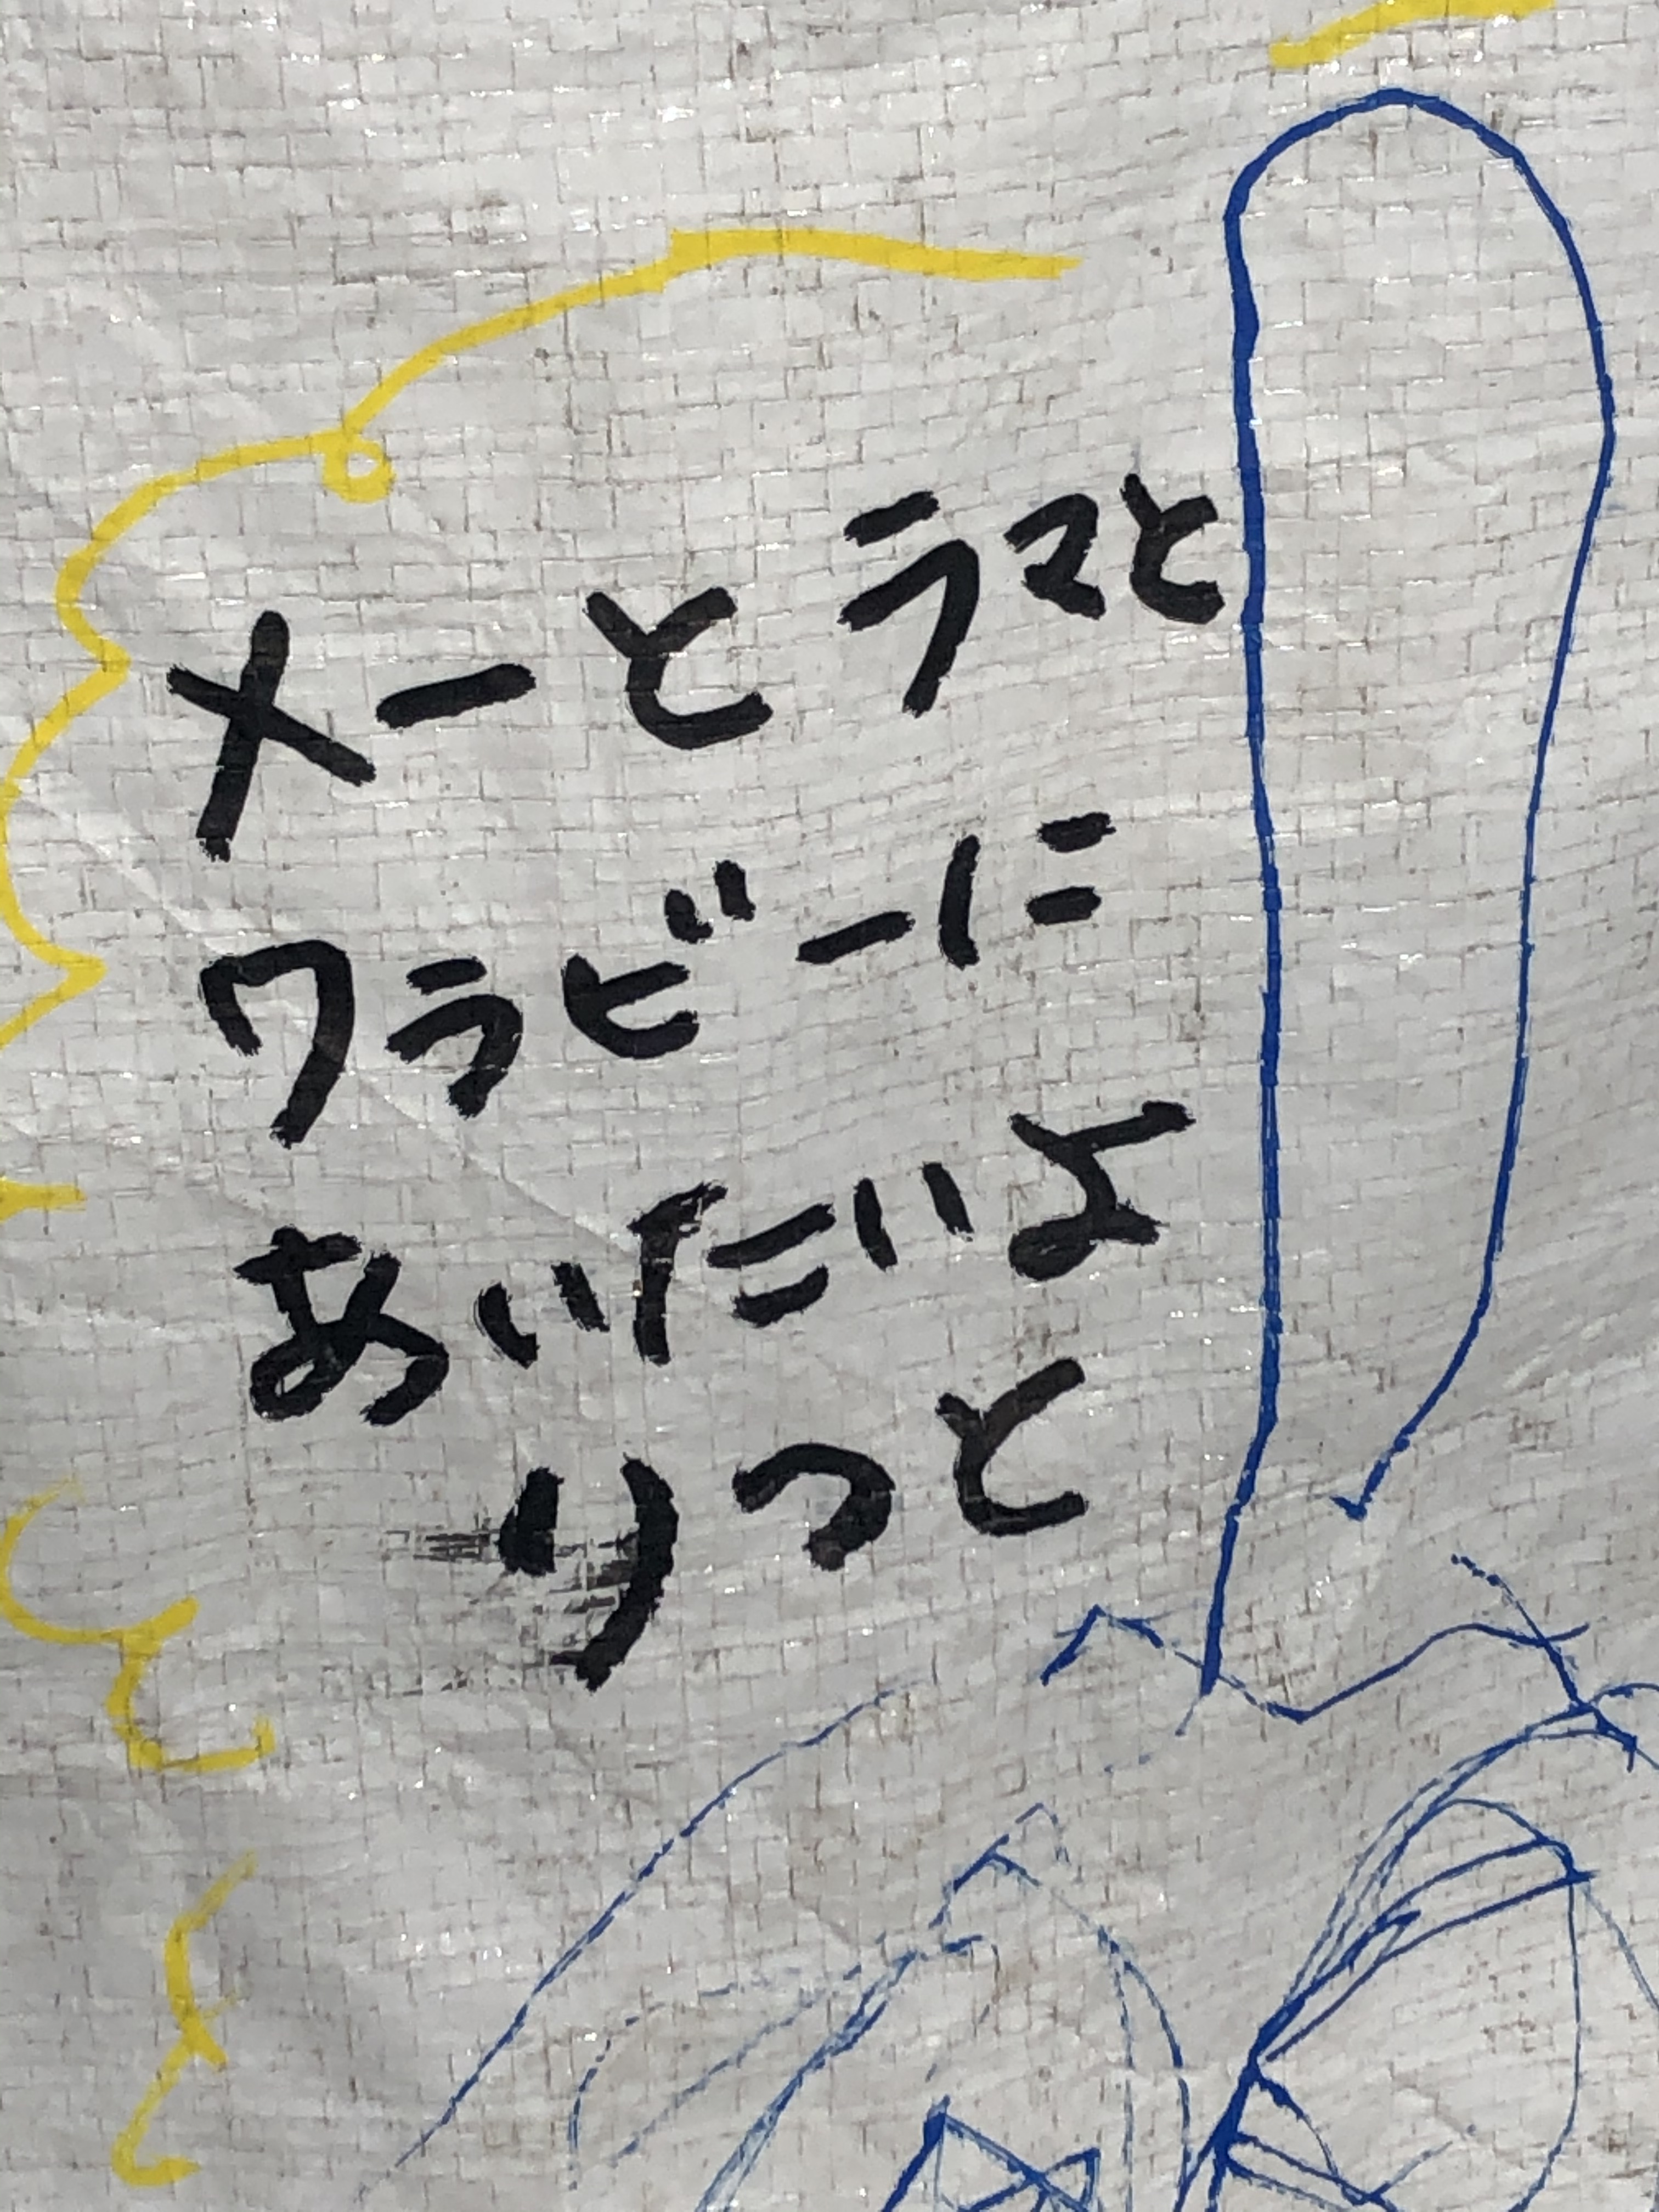 メーと ラマと
ワラビーに
あいたいよ
りつと